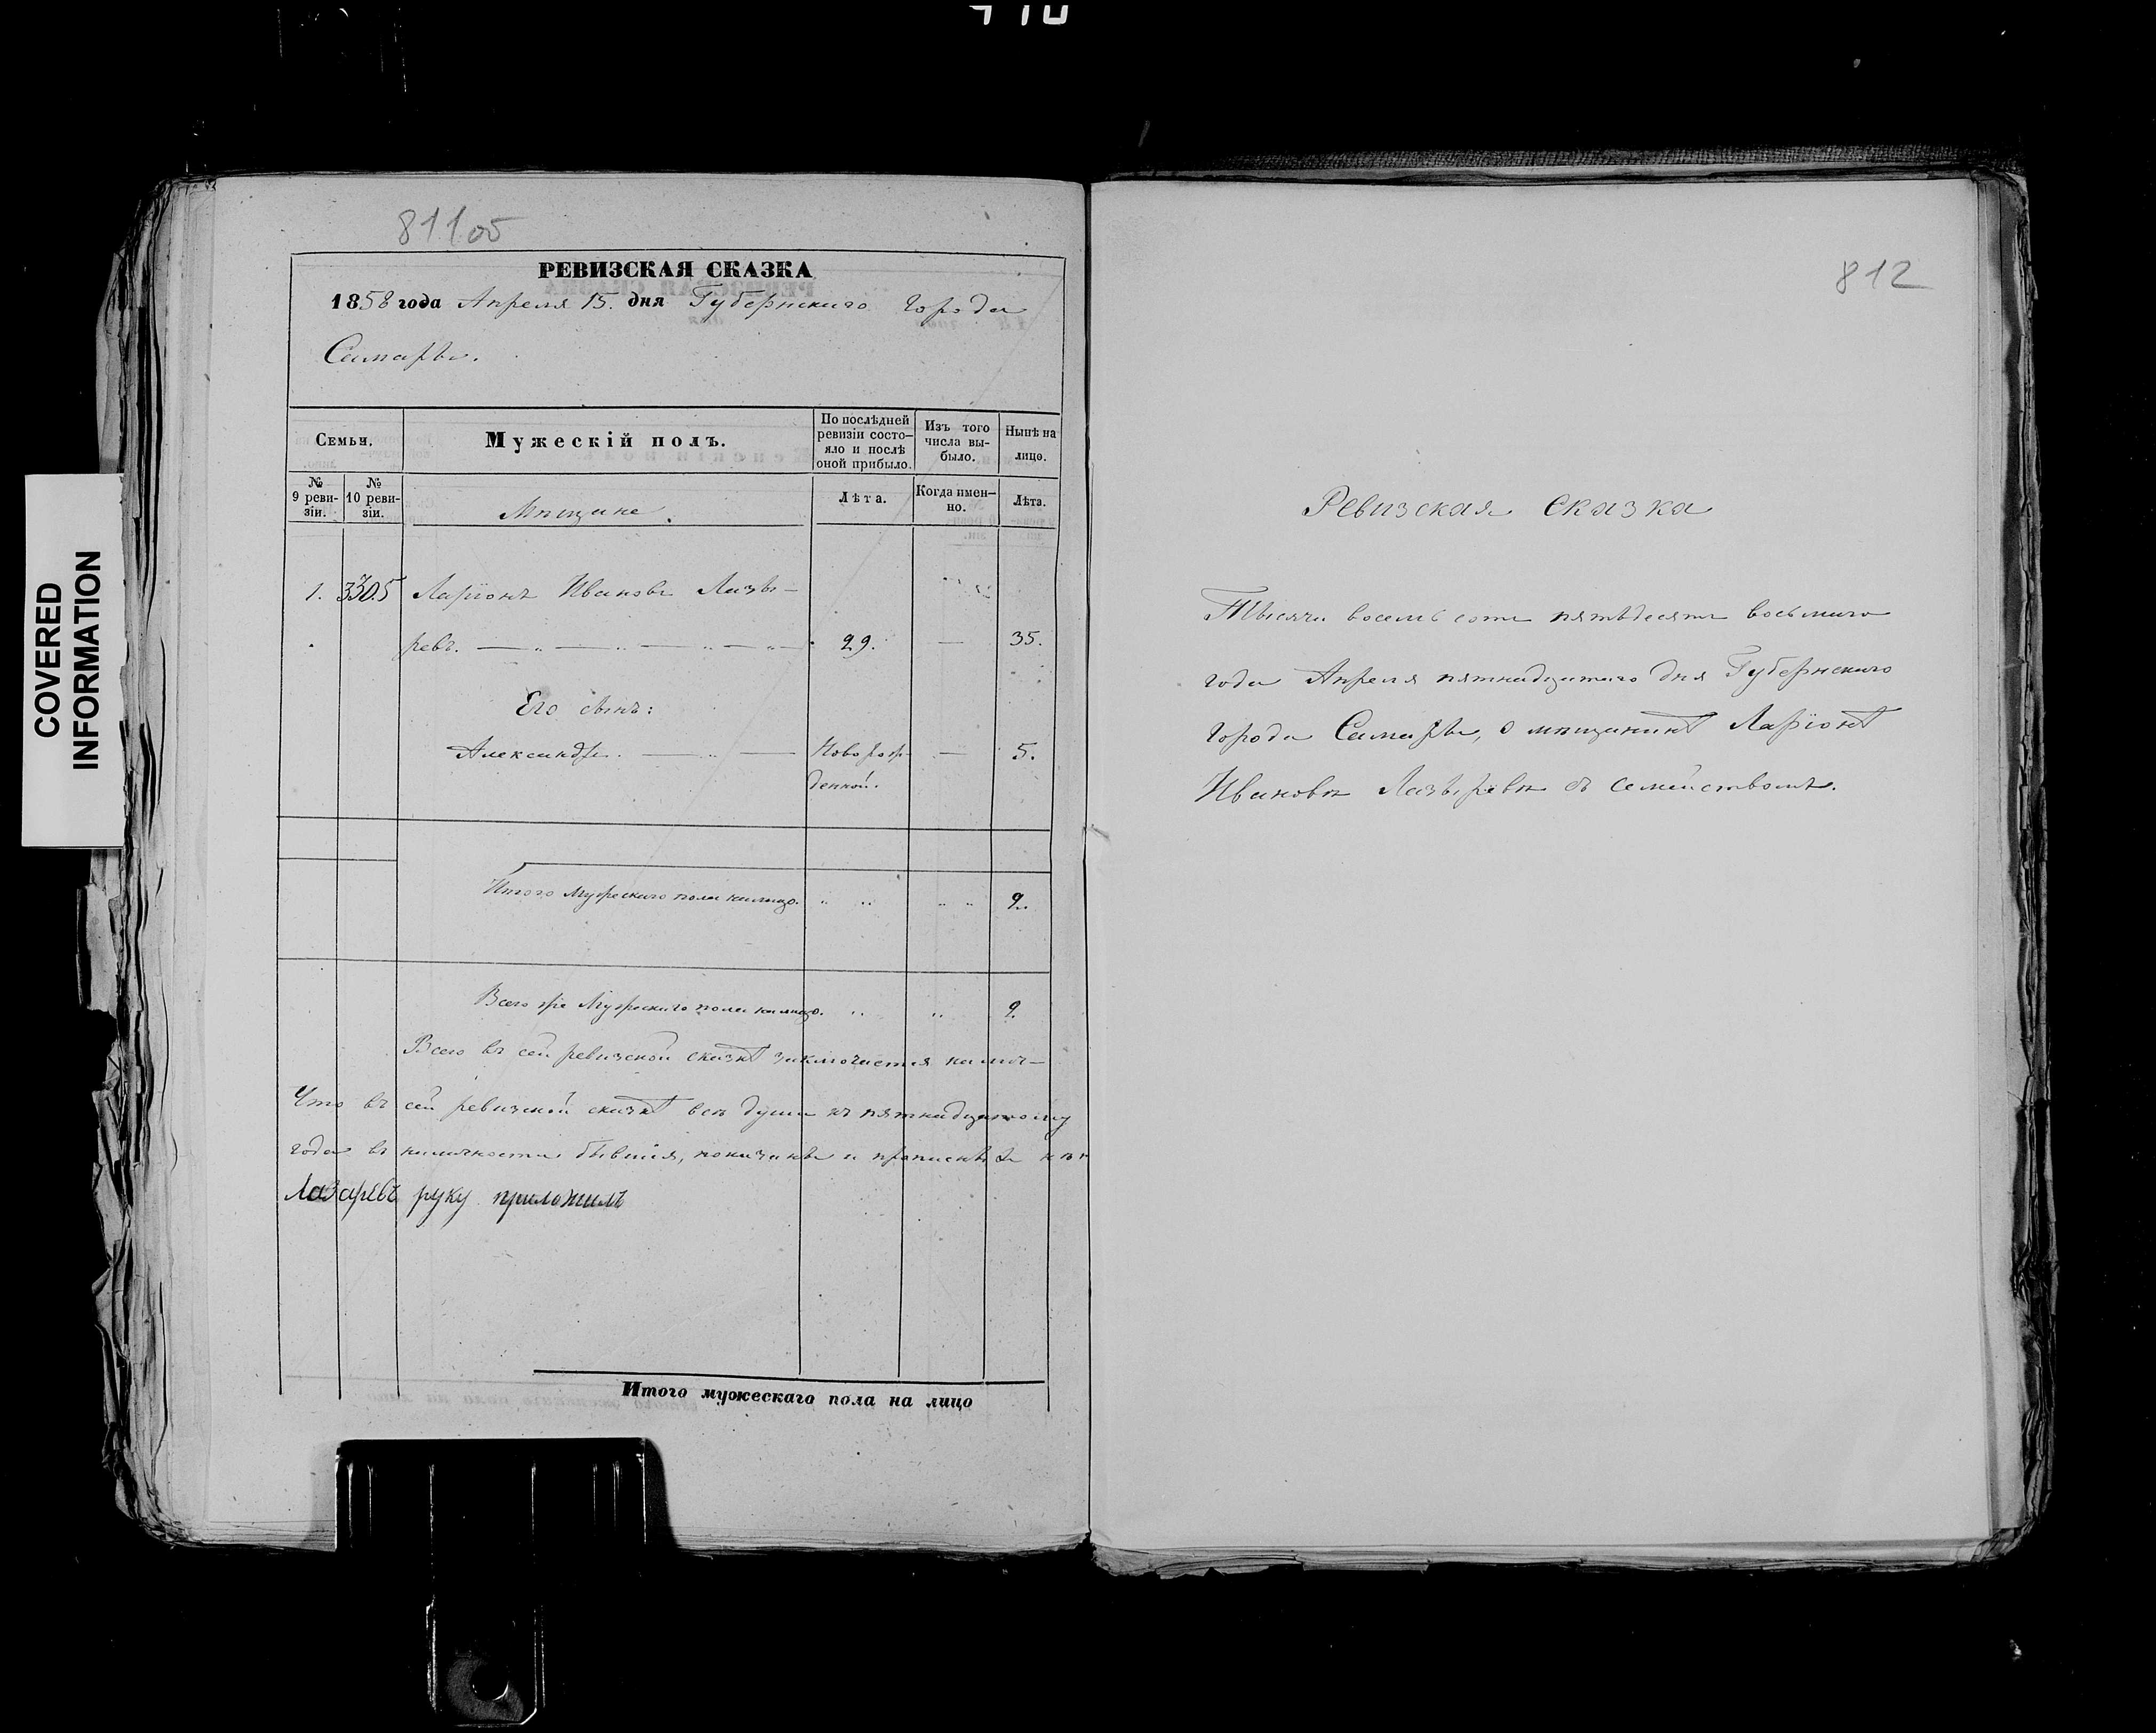 811об
РЕВИЗСКАЯ СКАЗКА
1858 года Апреля 15. дня Губернскаго Города
Самары.
Семьи.
Мужескій полъ.
По послѣдней ревизіи состо-яло и послѣ оной прибыло.
Изъ того числа вы-было.
Нынѣ на лицо.
№ 9 реви-зіи.
№ 10 реви-зіи.
Мѣщане.
Лѣта.
Когда имен-но.
Лѣта.
1. 3305 Ларіонъ Ивановъ Лазы-
ревъ. 29. — 35.
Его сынъ:
Александръ. Новорож- — 5.
денной.
Итого мужескаго пола налицо. 2.
Всего же Мужескаго пола налицо. 2.
Всего въ сей ревизской сказкѣ заключается налич-
Что въ сей ревизской сказкѣ всѣ души къ пятнадцатому
года въ наличности бывшія, показаны и прописныхъ
Лазаревъ руку приложилъ
Итого мужескаго пола на лицо
812
Ревизская сказка
Тысяча восемьсотъ пятьдесятъ восьмаго
года Апреля пятнадцатаго дня Губернскаго
города Самары, о мѣщанинѣ Ларіонѣ
Ивановѣ Лазыревѣ съ семействомъ.
COVERED
INFORMATION